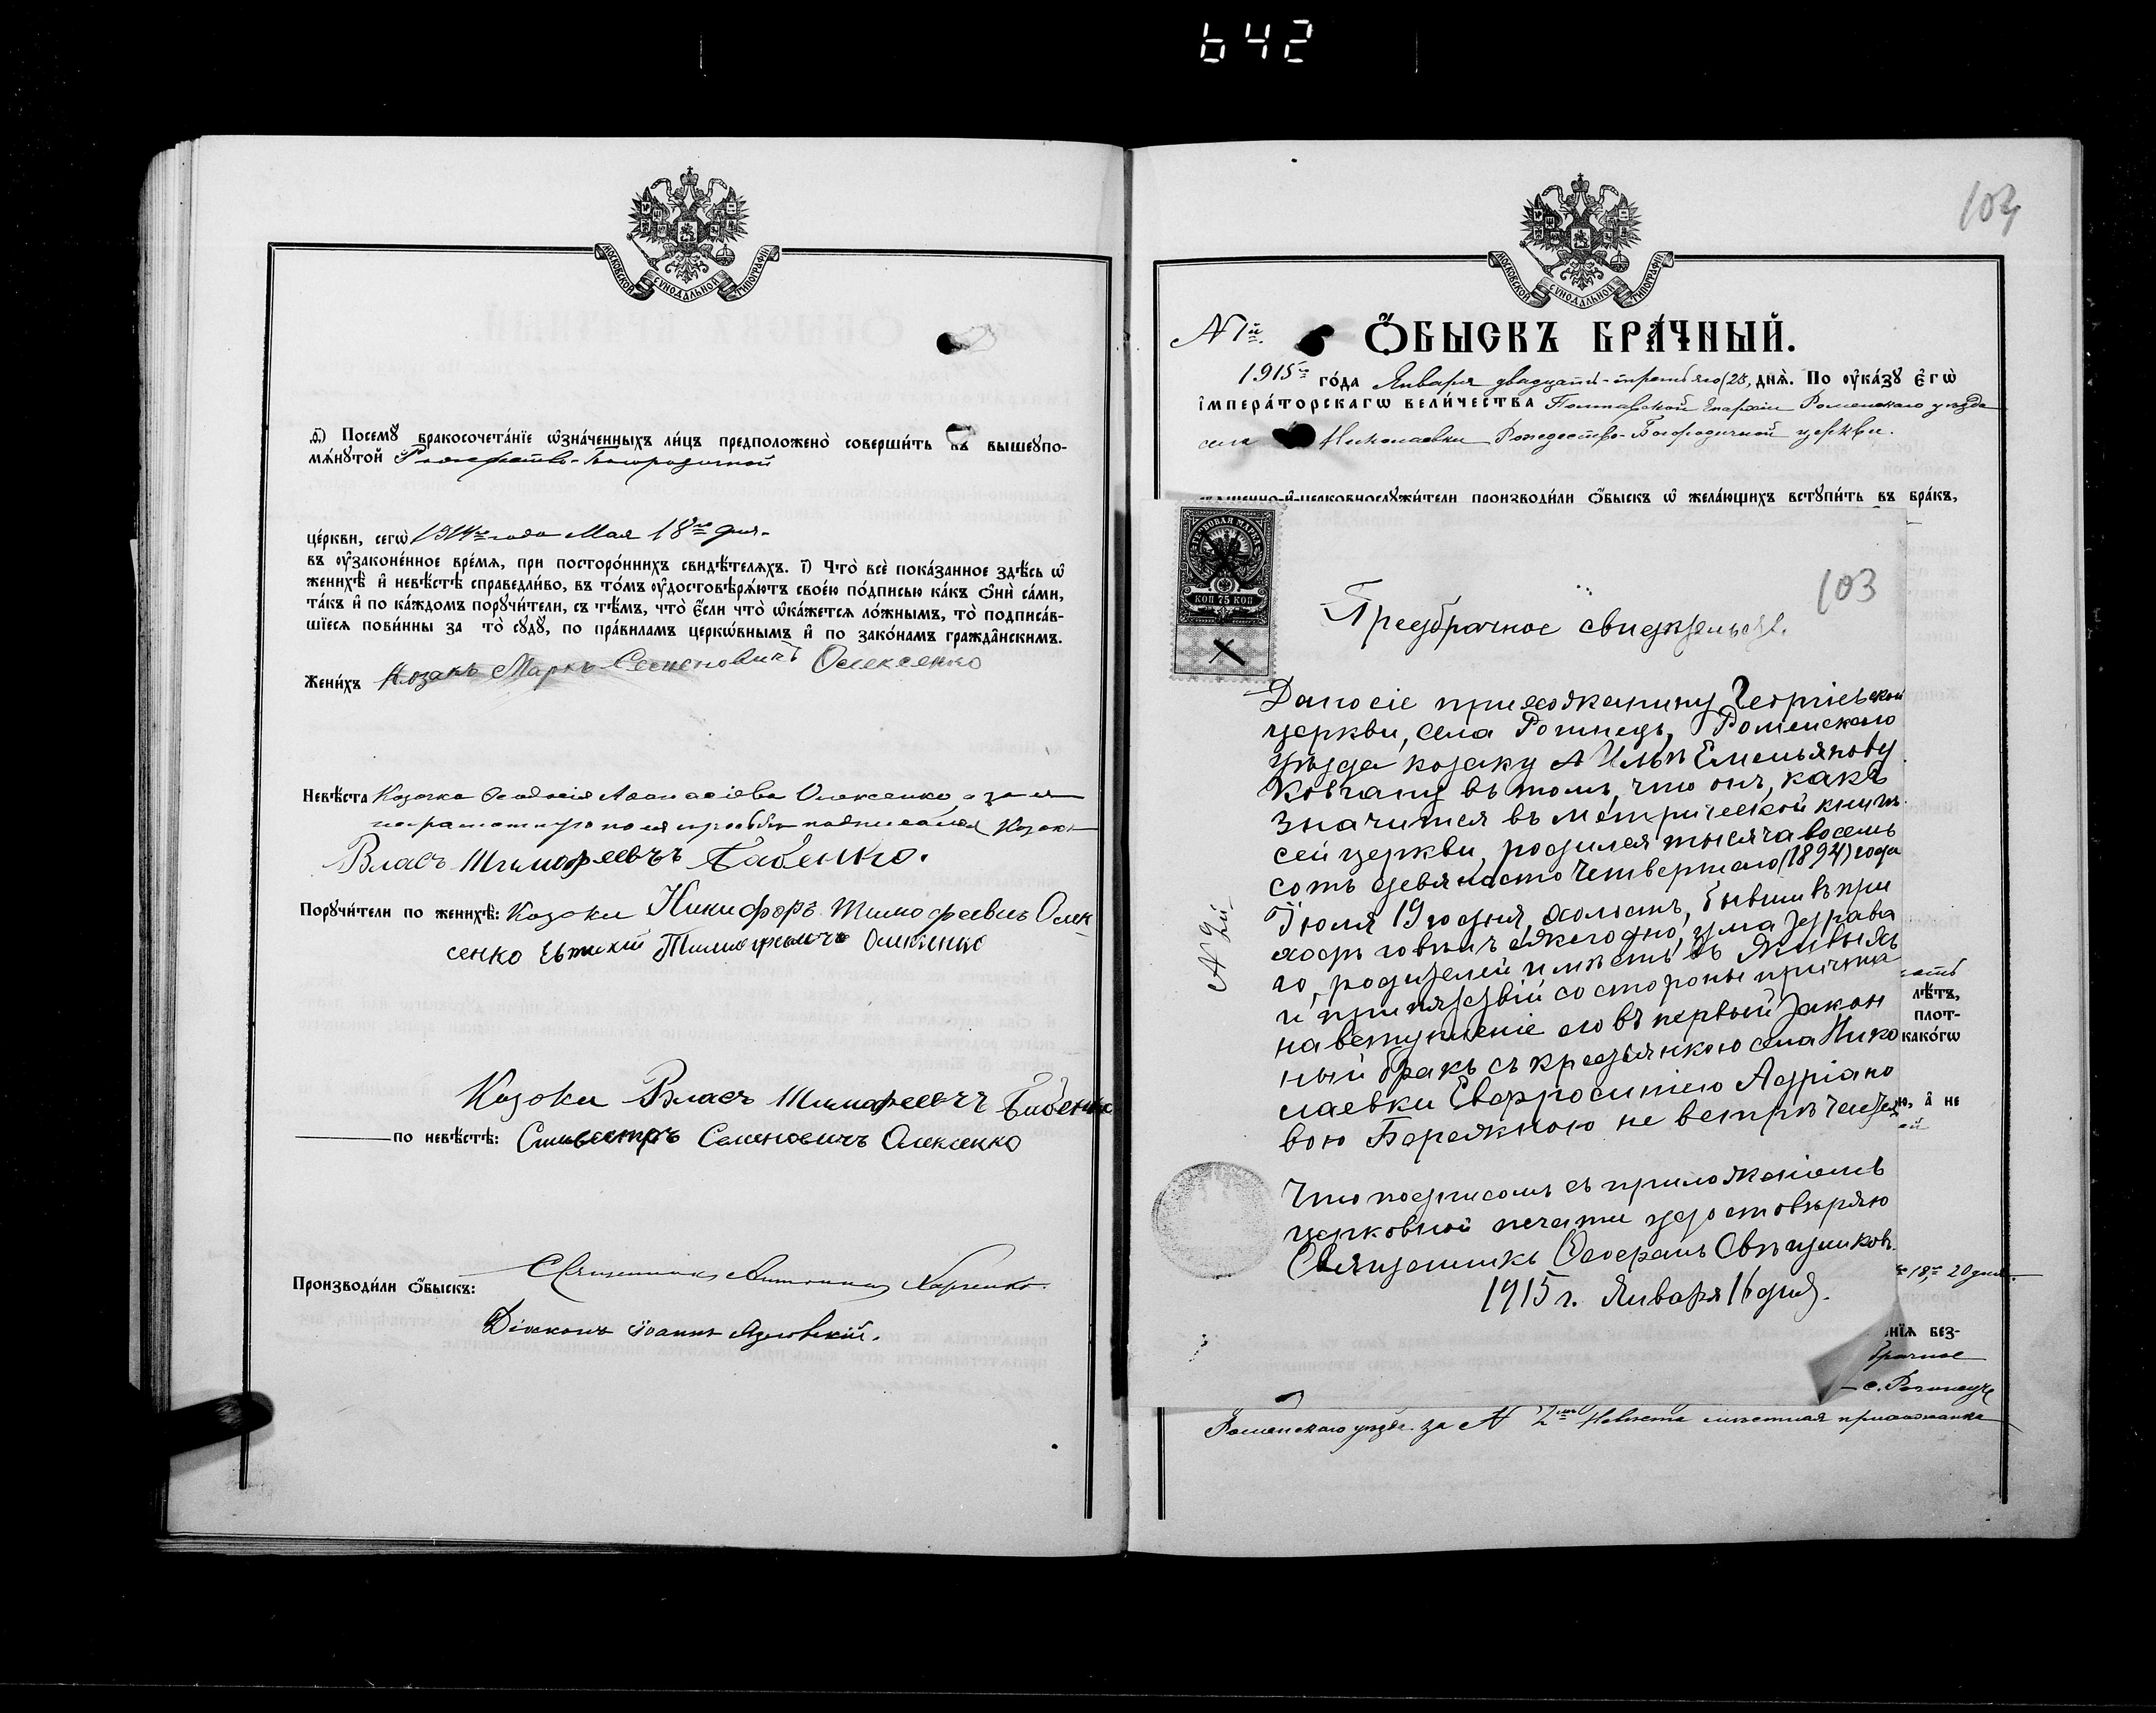 642
МОСКОВСКОЙ СѴНОДАЛЬНОЙ ТИПОГРАФІИ
ѳ҃) Посемꙋ̀ бракосочета́нїе ѡ҆зна́ченныхъ ли́цъ предположено̀ соверши́ть въ вышеꙋпо-
мѧ́нꙋтой Рождество-Богородичной
це́ркви, сегѡ̀ 1914го года Мая 18го дня.
въ ᲂу҆законе́нное вре́мѧ, при посторо́ннихъ свидѣ́телѧхъ. і҃) Что̀ всѐ пока́занное здѣ́сь ѡ҆
женихѣ̀ и҆ невѣ́стѣ справедли́во, въ то́мъ ᲂу҆достовѣрѧ́ютъ свое́ю по́дписью ка́къ ѻ҆нѝ са́ми,
та́къ и҆ по ка́ждомъ порꙋчи́тели, съ тѣ́мъ, что̀ є҆́сли что̀ ѡ҆ка́жетсѧ ло́жнымъ, то̀ подписа́в-
шїесѧ пови́нны за то̀ сꙋдꙋ̀, по пра́вилам церкѡ́внымъ и҆ по зако́намъ гражда̑нскимъ.
Жени́хъ Козакъ Маркъ Семеновичъ Олексенко
Невѣ́ста Козачка Феодосія Аѳанасіева Олексенко, а за ея
неграмотную по ея просьбѣ подписался Козакъ
Власъ Тимофеевичъ Бабенко.
Порꙋчи́тели по женихѣ̀: Козаки Никифоръ Тимофеевичъ Олек
сенко Евтихій Олексенко
Козаки Власъ Тимофеевичъ Бабенко
по невѣ́стѣ: Сильвестръ Семеновичъ Олексенко
Производи́ли ѻ҆́быскъ: Священникъ Харченко
Діаконъ Іоаннъ
103
МОСКОВСКОЙ СѴНОДАЛЬНОЙ ТИПОГРАФІИ
N 1й. Ѻ҆́БЫСКЪ БРА́ЧНЫЙ.
1915го го́да Января двадцать-третьяго (23) днѧ̀. По ᲂу҆ка́зꙋ є҆гѡ̀
і҆мпера́торскагѡ вели́чества Полтавской Епархіи Роменскаго уѣзда
села Николаевки Рождество-Богородичной церкви.
и҆ церковнослꙋжи́тели производи́ли ѻ҆́быскъ ѡ҆ жела́ющихъ встꙋпи́ть въ бра́къ,
ГЕРБОВАЯ МАРКА
КОП 75 КОП
103
Предбрачное свидѣтельст.
Дано сіе прихожанину Георгіевской
церкви, села Рогинецъ, Роменскаго
уѣзда козаку Ильѣ Емельянову
Ковгану въ томъ, что онъ, какъ
значится въ метрической книгѣ
сей церкви, родился тысяча восемь
сотъ девяносто четвертаго (1894) года
N 2й
Іюля 19го дня, холостъ, бывши въ при
ходѣ говѣлъ ежегодно, ума здрава
го, родителей имѣетъ въ живыхъ
и препятствій со стороны причта
на вступленіе его въ первый закон
ный бракъ съ крестьянкою села Нико
лаевки Евфросиніею Адріано
вою Бережною не встрѣчается
Что подписомъ съ приложеніемъ
церковной печати удостовѣряю
Священникъ Свѣчниковъ.
1915 г. Января 16 дня.
лѣ́тъ,
плот-
како́гѡ
ю, а҆ не
18, 20 дня.
нїѧ без-
брачное
с. Рогинецъ
Роменскаго уѣзда за N 2мъ Невѣста мѣстная прихожанка